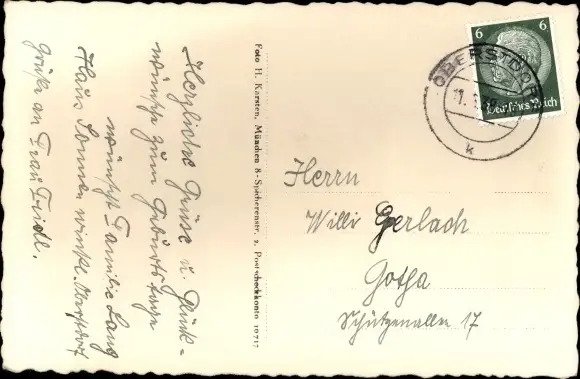 Herzliche Grüße u. Glück-
wünsche zum Geburtstage
wünscht Familie Lang
Haus Sonnenwinkl. Oberstdorf
Grüße an Frau Friedl.
Foto H. Karsten, München 8-Spicherenstr. 2, Postscheckkonto 19717
6 6
Deutsches Reich
OBERSTDORF
11.
k
Herrn
Willi Gerlach
Gotha
Schützenallee 17